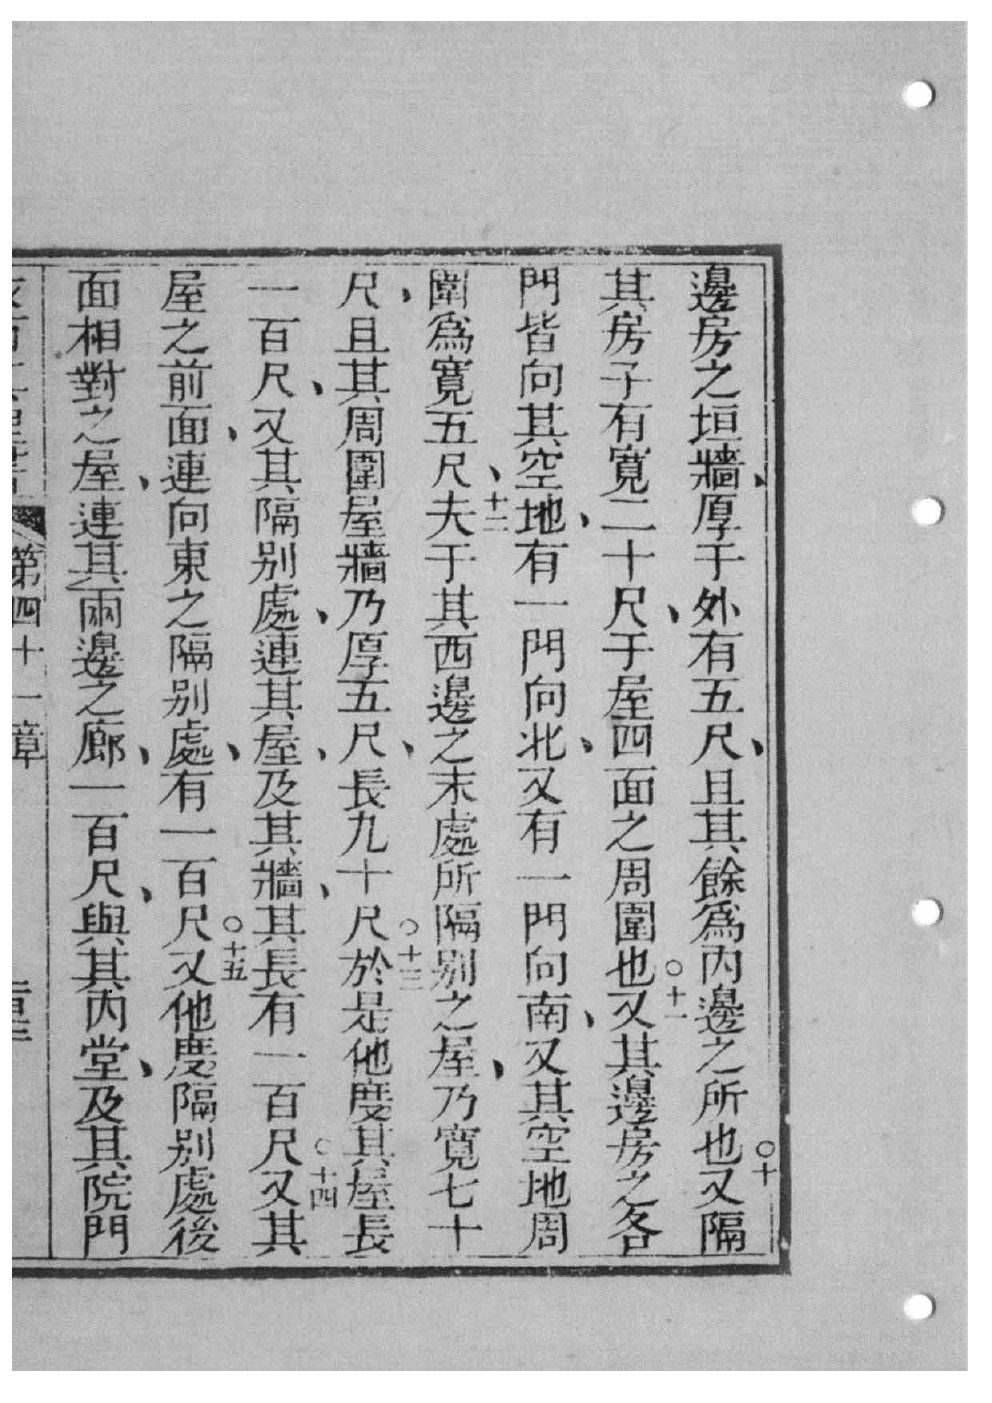 邊房之垣牆、厚于外有五尺、且其餘爲內邊之所也○十又隔
其房子有寬二十尺、于屋四面之周圍也○十一又其邊房之各
門皆向其空地、有一門向北、又有一門向南、又其空地周
圍爲寬五尺、十二夫于其西邊之末處所隔別之屋、乃寬七十
尺、且其周圍屋牆乃厚五尺、長九十尺○十三於是他度其屋長
一百尺、又其隔別處、連其屋、及其牆、其長有一百尺○十四又其
屋之前面、連向東之隔別處、有一百尺○十五又他度隔別處後
面相對之屋、連其兩邊之廊、一百尺、與其內堂、及其院門
第四十一章